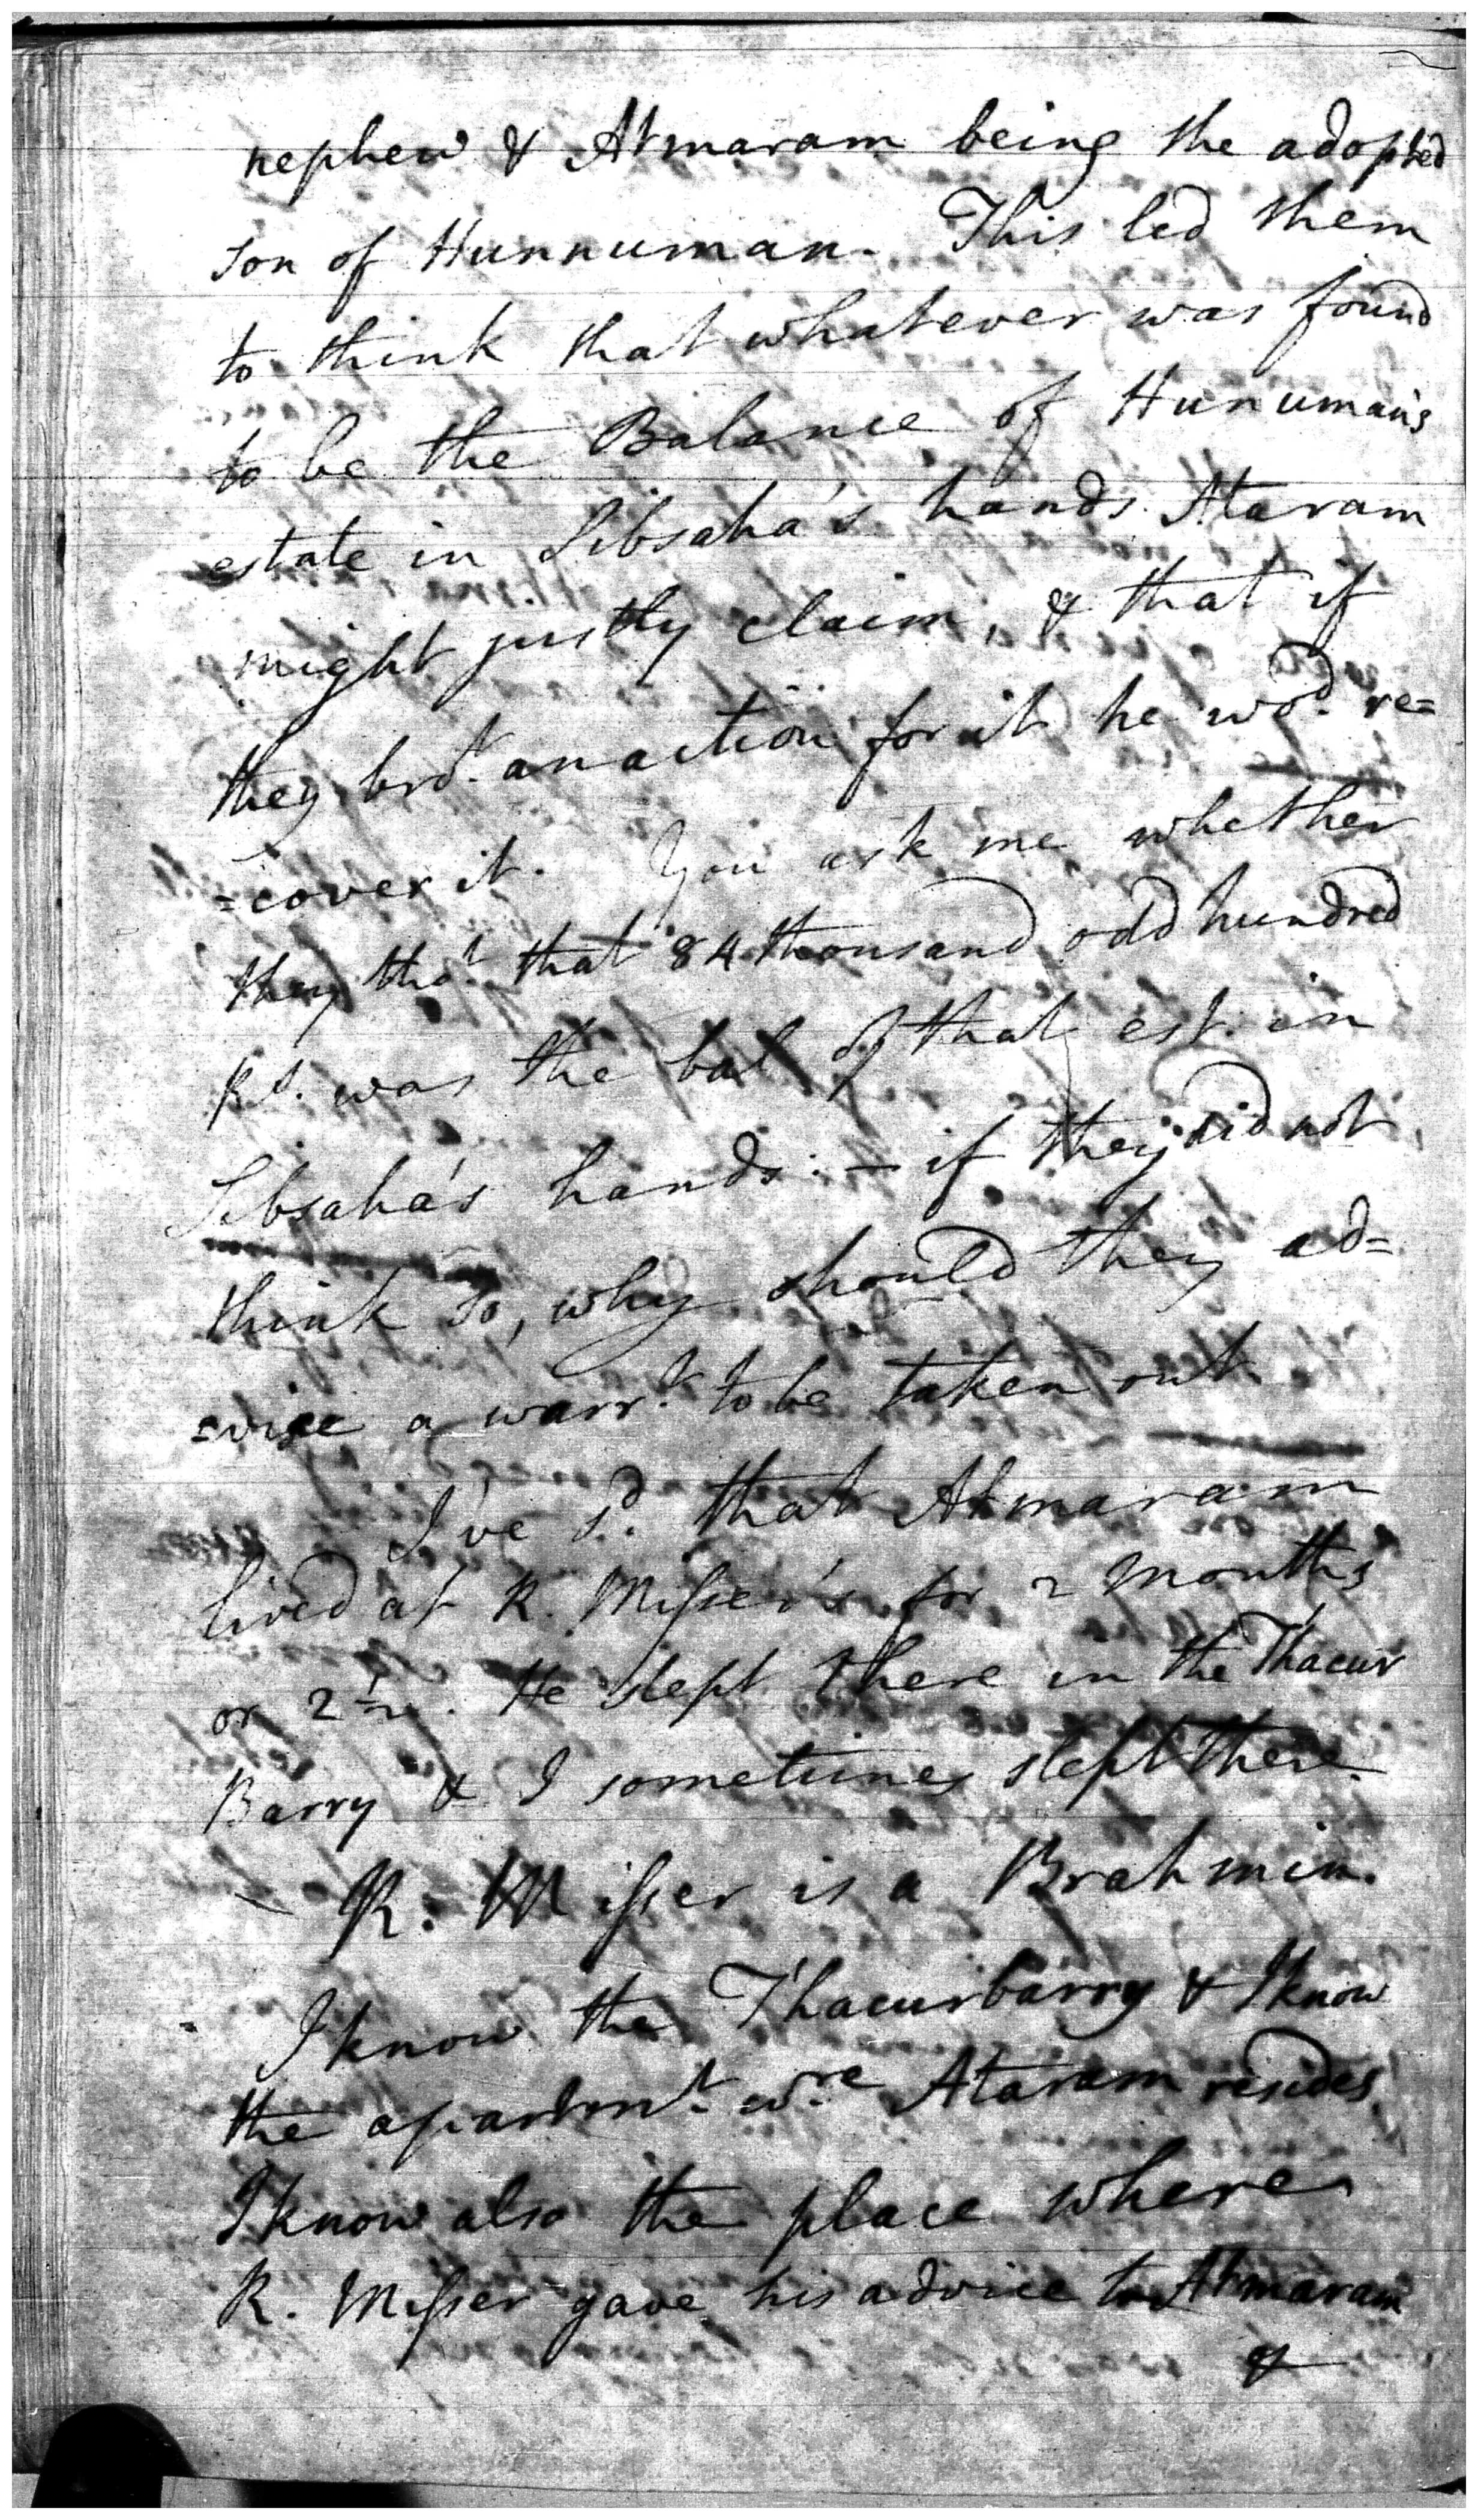 nephew & Atmaram being the adopted
son of Hunnuman. This led them
to think that whatever was found
to be the Balance of Hunuman's
estate in Sibsaha's hands Ataram
might justly claim, & that if
they bro.t an action for it he wo.d re=
=cover it. You ask me whether
they tho.t that 84 thousand odd hundred
R.s was the bal of that est. in
Sibsaha's hands: - if they did not
think so, why should they ad=
=vise a warr.t to be taken out
I've s.d that Atmaram
lived at R. Misser's for 2 months
or 2 1/2. He slept there in the Thacur
Barry & I sometimes slept there.
R. Misser is a Brahmin.
I know the Thacurbarry & I know
the apartm.t w.re Ataram resides.
I know also the place where
R. Misser gave his advice to Atmaram
&